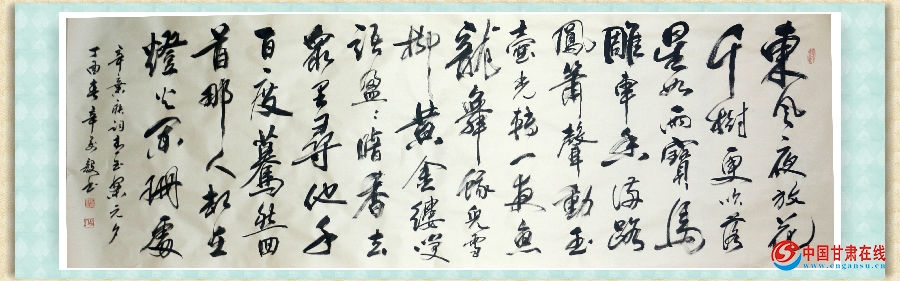 東风夜放花
千樹更吹落
星如雨寶馬
雕車香滿路
鳳簫聲動玉
壺光轉一夜魚
龍舞蛾兒雪
柳黄金縷笑
語盈〻暗香去
衆里尋他千
百度驀然回
首那人却在
燈火闌珊處
辛棄疾詞青玉案元夕
丁酉春
中国甘肃在线
www.cngansu.cn